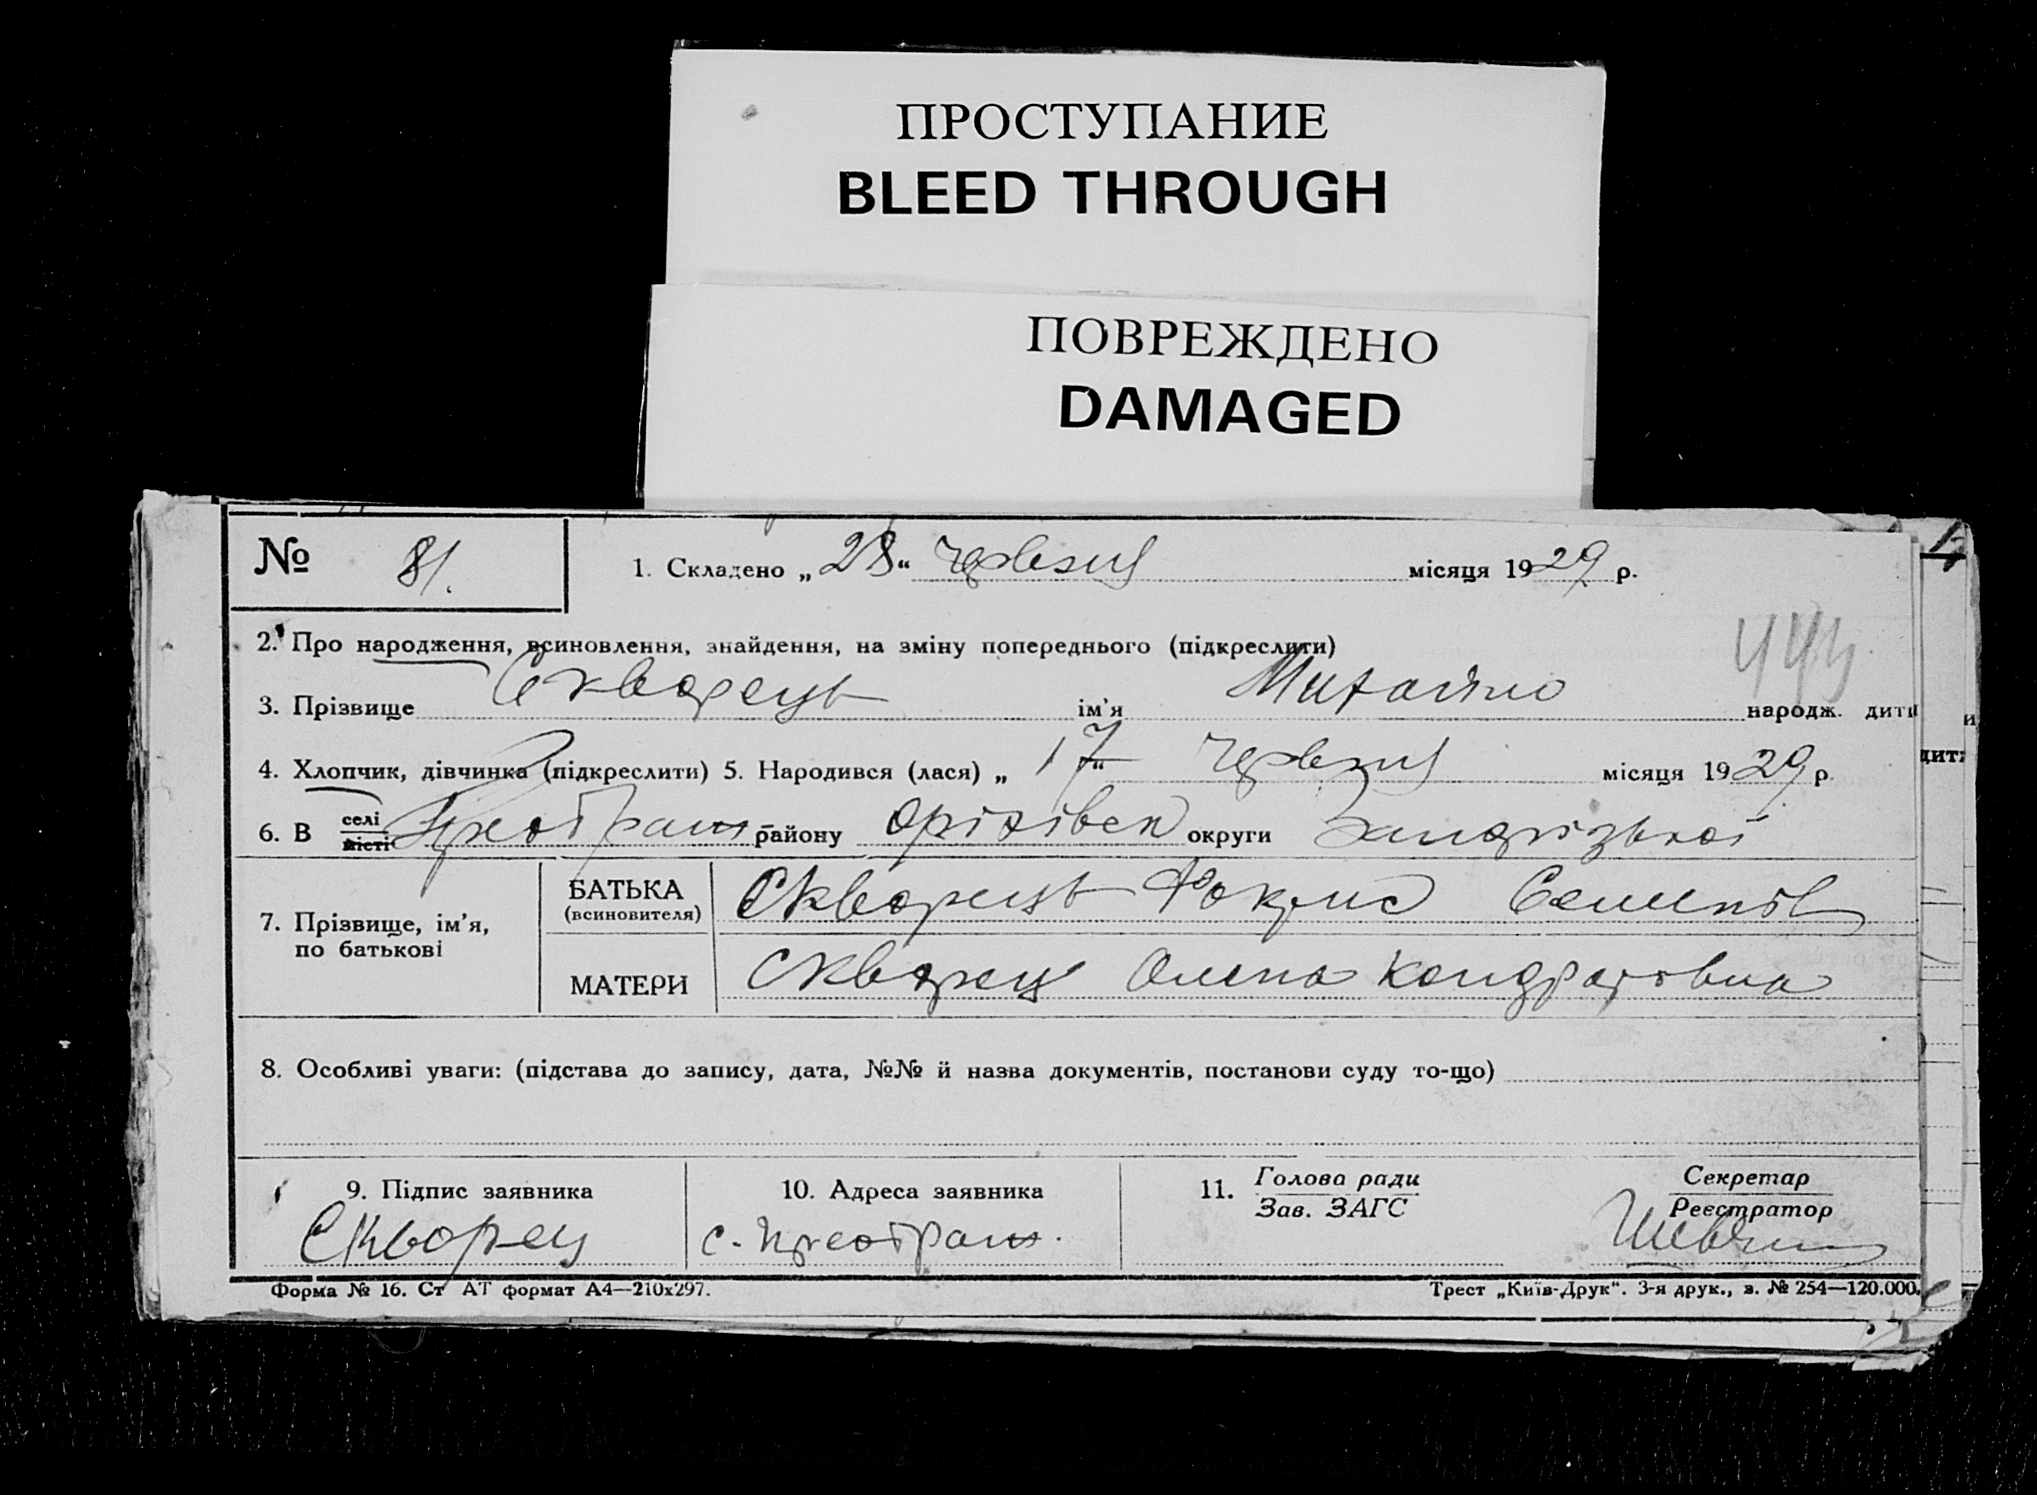 ПРОСТУПАНИЕ
BLEED THROUGH
ПОВРЕЖДЕНО
DAMAGED
№ 81. 1. Складено „28“ червня місяця 1929 р.
2. Про народження, всиновлення, знайдення, на зміну попереднього (підкреслити)
3. Прізвище Скворець ім'я Михайло народж. дити
4. Хлопчик, дівчинка (підкреслити) 5. Народився (лася) „17“ червня місяця 1929 р.
6. В селі місті Преображ району Оріхівськ округи Запорізької
7. Прізвище, ім'я, по батькові
БАТЬКА (всиновителя) Скворець Семенов
МАТЕРИ Скворец Олена Кондратовна
8. Особливі уваги: (підстава до запису, дата, №№ й назва документів, постанови суду то-що)
9. Підпис заявника 10. Адреса заявника 11. Голова ради Зав. ЗАГС Секретар Реєстратор
Скворец с. Преображ.
Форма № 16. Ст АТ формат А4—210х297. Трест „Київ-Друк“. 3-я друк., з. № 254—120.000.